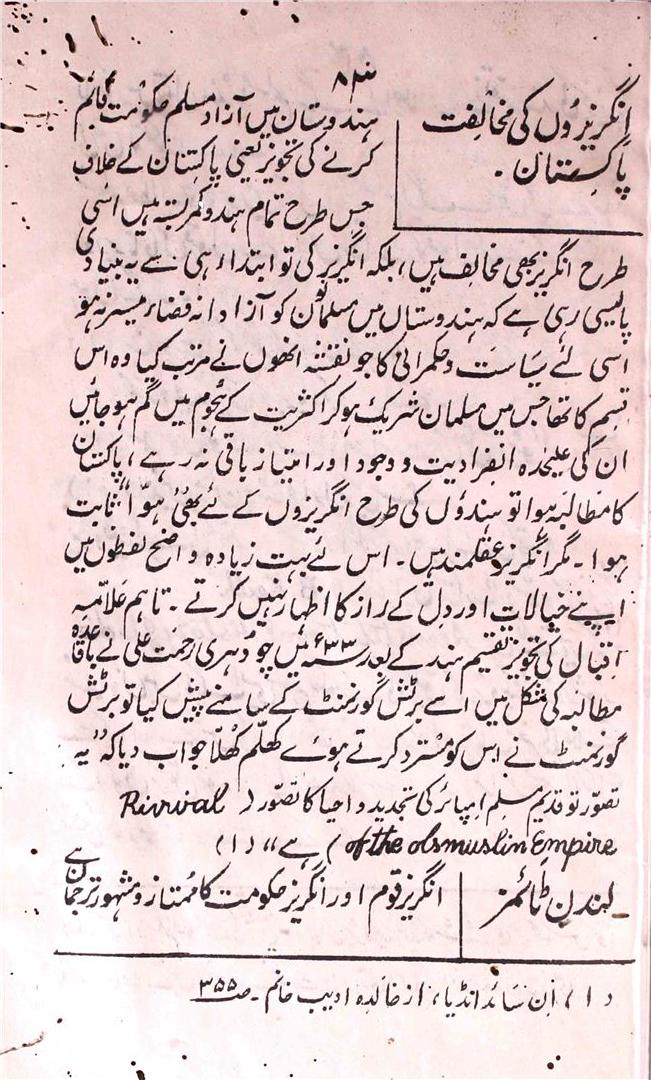 ۸۳
انگریزوں کی مخالفت
پاکستان ۔
ہندوستان میں آزاد مسلم حکومت قائم
کرنے کی تجویز یعنی پاکستان کے خلاف
جس طرح تمام ہندو کمربستہ ہیں اسی
طرح انگریز بھی مخالف ہیں، بلکہ انگریز کی تو ابتداء ہی سے یہ بنیادی
پالیسی رہی ہے کہ ہندوستان میں مسلمانوں کو آزادانہ فضاء میسر نہ ہو
اسی لئے سیاست و حکمرانی کا جو نقشہ انھوں نے مرتب کیا وہ اس
قسم کا تھا جس میں مسلمان شریک ہو کر اکثریت کے ہجوم میں گم ہو جائیں
ان کی علیحدہ انفرادیت و وجود اور امتیاز باقی نہ رہے، پاکستان
کا مطالبہ ہوا تو ہندوٗں کی طرح انگریزوں کے لئے بھی "ہوّا" ثابت
ہوا ۔ مگر انگریز عقلمند ہیں ۔ اس لئے بہت زیادہ واضح لفظوں میں
اپنے خیالات اور دل کے راز کا اظہار نہیں کرتے ۔ تاہم علامہ
اقبال کی تجویز تقسیم ہند کے بعد ۳۳ء؁ میں چودھری رحمت علی نے باقاعدہ
مطالبہ کی شکل میں اسے برٹش گورنمنٹ کے سامنے پیش کیا تو برٹش
گورنمنٹ نے اس کو مسترد کرتے ہوئے کھلّم کھلّا جواب دیا کہ "یہ
تصوّر تو قدیم مسلم ایمپائر کی تجدید و احیا کا تصوّر ( Rivival
of the olsmuslin Empire ) ہے" (۱)
لندن ٹائمز
انگریز قوم اور انگریز حکومت کا ممتاز و مشہور ترجمان ہے
(۱) اِن سائڈ انڈیا، از خالدہ ادیب خانم ۔ صـ ۳۵۵